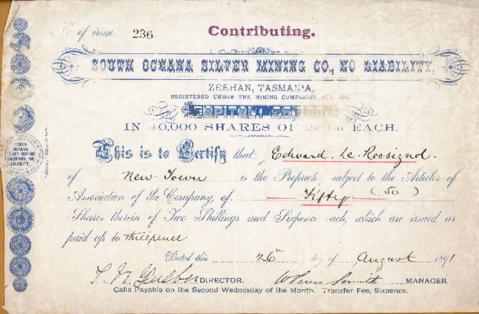 No of issue 236
Contributing.
SOUTH OCEANA SILVER MINING CO., NO LIABILITY,
ZEEHAN, TASMANIA,
REGISTERED UNDER THE MINING COMPANIES
CAPITAL
IN 40,000 SHARES OF EACH.
This is to Certify that Edward Le Rossignol
of New Town is the Proprietor, subject to the Articles of
Association of the Company, of Fifty (50)
Shares therein of Two Shillings and Sixpence each, which are issued as
paid up to threepence
Dated this 26th day of August 1891
DIRECTOR. MANAGER.
Calls Payable on the Second Wednesday of the Month. Transfer Fee, Sixpence.